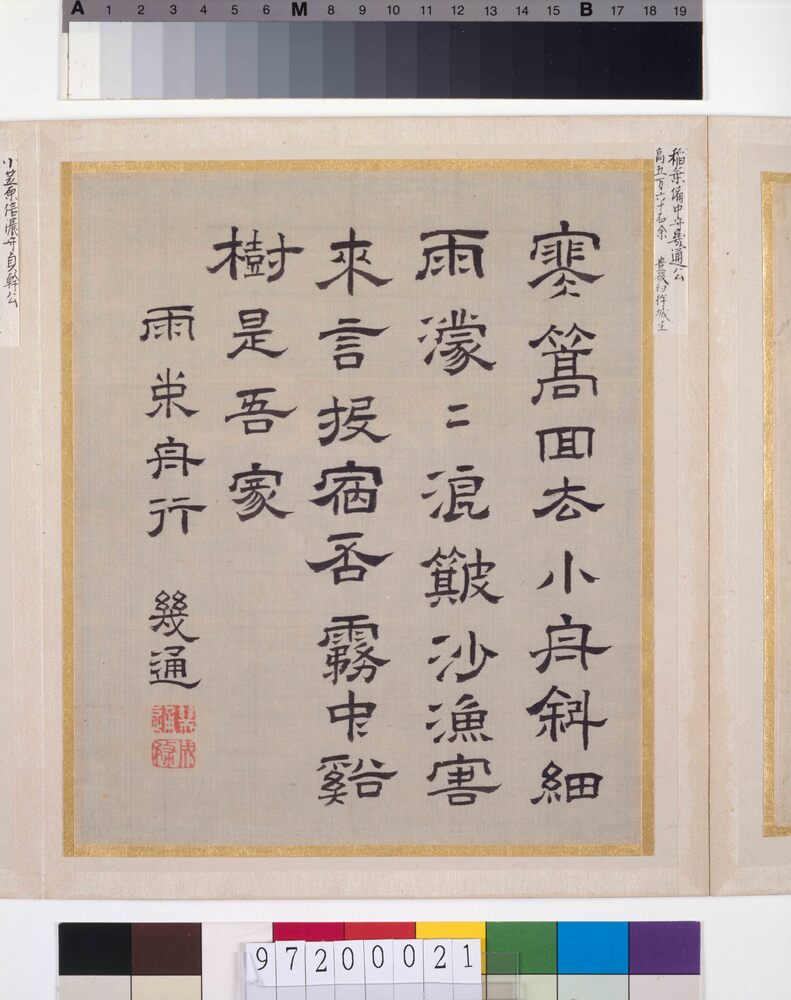 A 1 2 3 4 5 6 M 8 9 10 11 12 13 14 15 B 17 18 19
稲葉備中守幾通公
高五万六十石余 豊後臼杵城主
寒篙回去小舟斜細
雨濛々浪簸沙漁客
來言投宿否霧中谿
樹是吾家
雨舟行 幾通
小笠原信濃守貞幹公
97200021